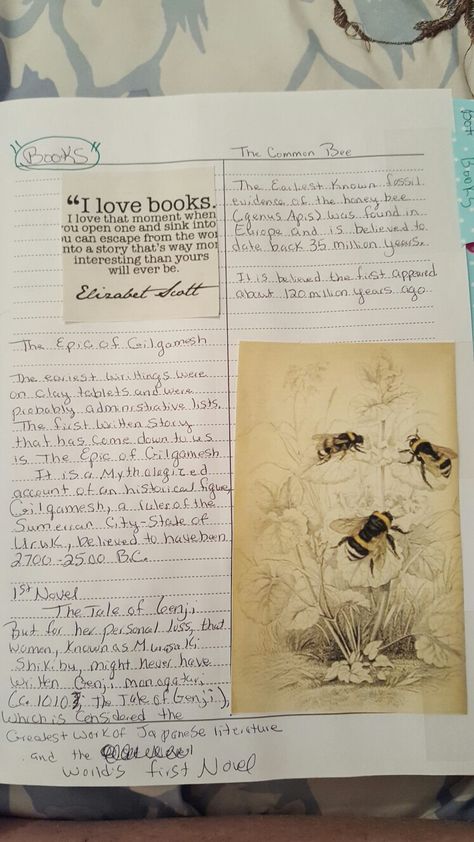 Books
"I love books.
I love that moment when
you open one and sink into
you can escape from the wor
into a story that's way mor
interesting than yours
will ever be.
Elizabet Scott
The Epic of Gilgamesh
The earliest writtings were
on clay tablets and were
probably administrative lists.
The first written story
that has come down to us
is The Epic of Gilgamesh
It is a Mythologized
account of an historical figure,
Gilgamesh, a ruler of the
Sumerian City-State of
Uruk, believed to have been
2700-2500 B.C.
1st Novel
The Tale of Genji
But for her personal loss, that
women, known as Murasaki
Shikibu, might never have
written Genji
(ca. 1010; The Tale of Genji),
which is considered the
Greatest work of Japanese literature
and the
World's first Novel
The Common Bee
The Earliest Known fossil
evidence of the honey bee
(genus Apis) was found in
Europe and is believed to
date back 35 million years.
It is believed the first appeared
about 120 million years ago.
Books